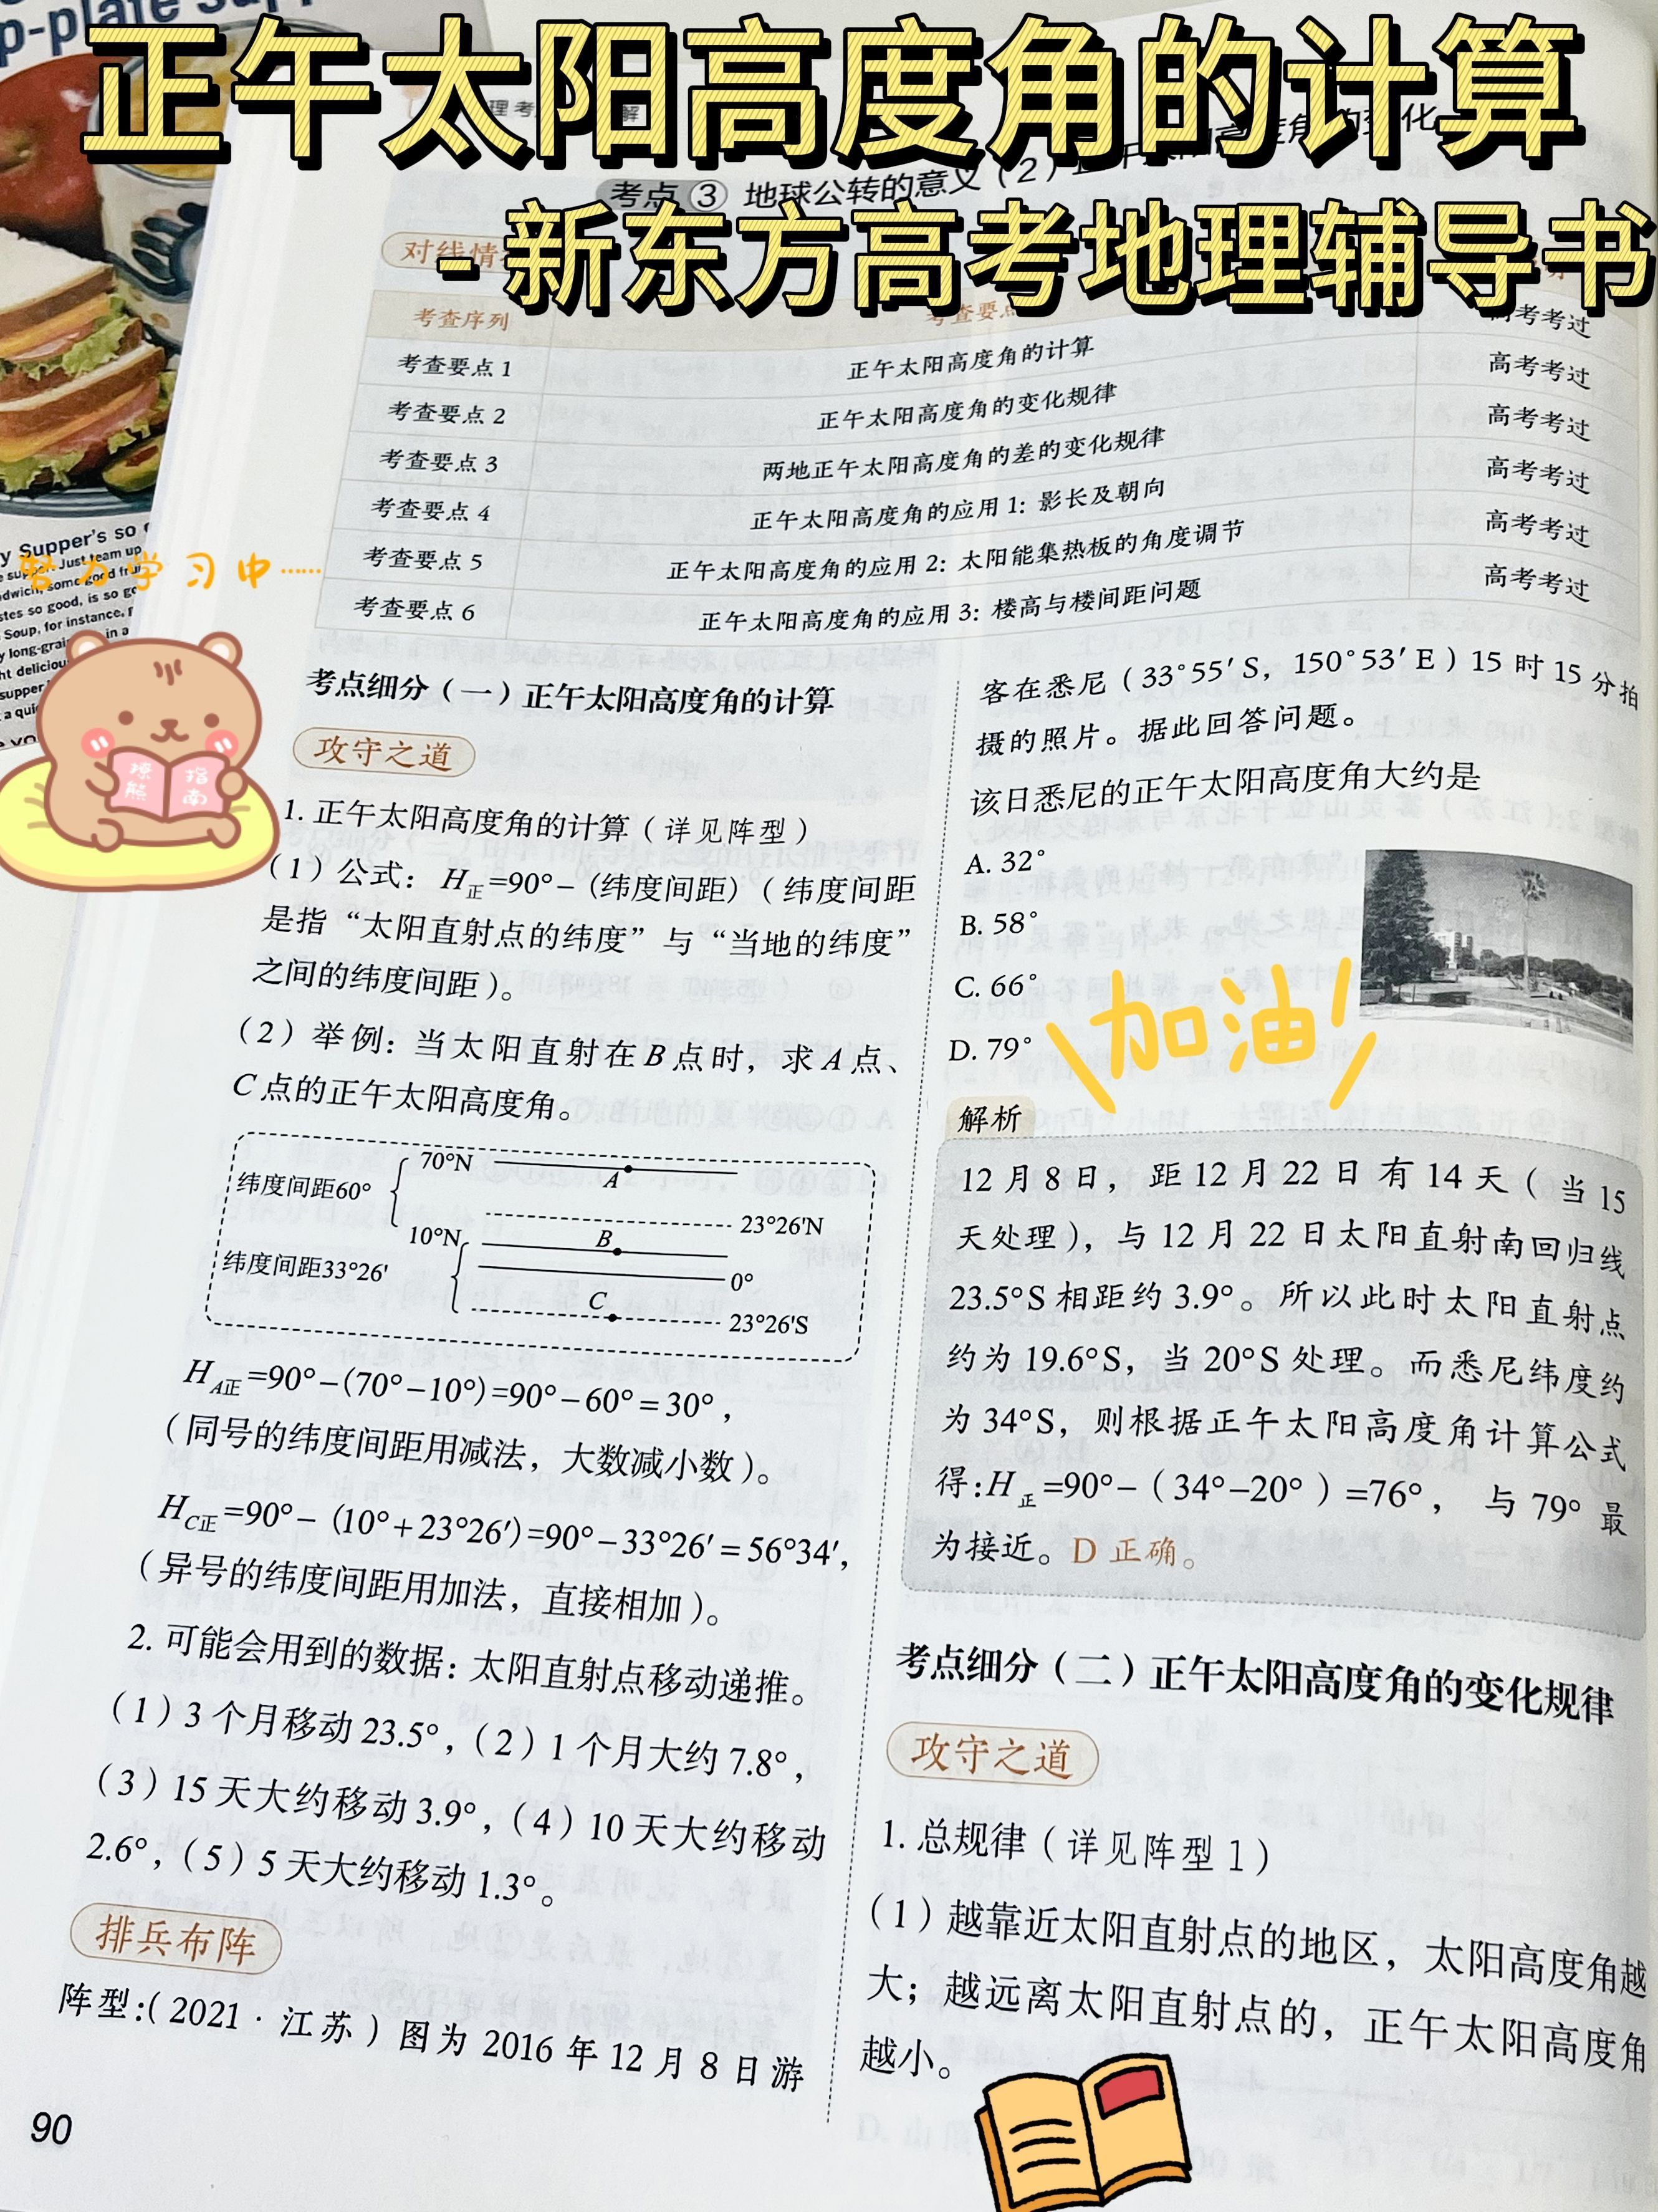 正午太阳高度角的计算
-新东方高考地理辅导书
p-plate supp
理考
解
考点③ 地球公转的意义（2）
角的变化
对线情
考查序列 考查要点
考查要点1 正午太阳高度角的计算 高考考过
考查要点2 正午太阳高度角的变化规律 高考考过
考查要点3 两地正午太阳高度角的差的变化规律 高考考过
考查要点4 正午太阳高度角的应用1：影长及朝向 高考考过
考查要点5 正午太阳高度角的应用2：太阳能集热板的角度调节 高考考过
考查要点6 正午太阳高度角的应用3：楼高与楼间距问题 高考考过
y Supper's so
Just team up
some good
stes so good, is so
Soup, for instance,
y long-grai in a
ht deliciou
supper
a qui
努力学习中……
撩 指
熊 南
考点细分（一）正午太阳高度角的计算
攻守之道
1. 正午太阳高度角的计算（详见阵型）
（1）公式：H正=90°-（纬度间距）（纬度间距
是指“太阳直射点的纬度”与“当地的纬度”
之间的纬度间距）。
（2）举例：当太阳直射在B点时，求A点、
C点的正午太阳高度角。
70°N
A
纬度间距60°
23°26′N
10°N
B
纬度间距33°26′
0°
C
23°26′S
HA正=90°-(70°-10°)=90°-60°=30°，
（同号的纬度间距用减法，大数减小数）。
HC正=90°-(10°+23°26′)=90°-33°26′=56°34′，
（异号的纬度间距用加法，直接相加）。
2. 可能会用到的数据：太阳直射点移动递推。
（1）3个月移动23.5°，（2）1个月大约7.8°，
（3）15天大约移动3.9°，（4）10天大约移动
2.6°，（5）5天大约移动1.3°。
排兵布阵
阵型：（2021·江苏）图为2016年12月8日游
90
客在悉尼（33°55′S，150°53′E）15时15分拍
摄的照片。据此回答问题。
该日悉尼的正午太阳高度角大约是
A. 32°
B. 58°
C. 66°
D. 79°
加油!
解析
12月8日，距12月22日有14天（当15
天处理），与12月22日太阳直射南回归线
23.5°S相距约3.9°。所以此时太阳直射点
约为19.6°S，当20°S处理。而悉尼纬度约
为34°S，则根据正午太阳高度角计算公式
得：H正=90°-（34°-20°）=76°，与79°最
为接近。D正确。
考点细分（二）正午太阳高度角的变化规律
攻守之道
1. 总规律（详见阵型1）
（1）越靠近太阳直射点的地区，太阳高度角越
大；越远离太阳直射点的，正午太阳高度角
越小。